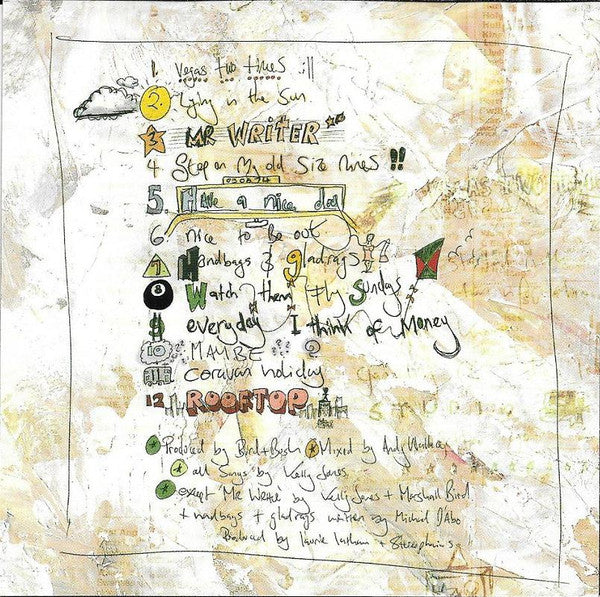 1. Vegas two times :||
2. Lying in the Sun
3 MR WRITER
4 Step on My old Size Nines !!
5. Have a nice day
6. nice to be out
7 Handbags & gladrags
8 Watch them Fly Sundays
9 everyday I think of Money
10 MAYBE ?
11 caravan holiday
12 ROOFTOP
Produced by Bird + Bush Mixed by Andy Wallace
all Songs by Kelly Jones
except 'Mr Writer by Kelly Jones + Marshall Bird
+ handbags + gladrags written by Michael D'Abo
Produced by Laurie Latham + Stereophonics